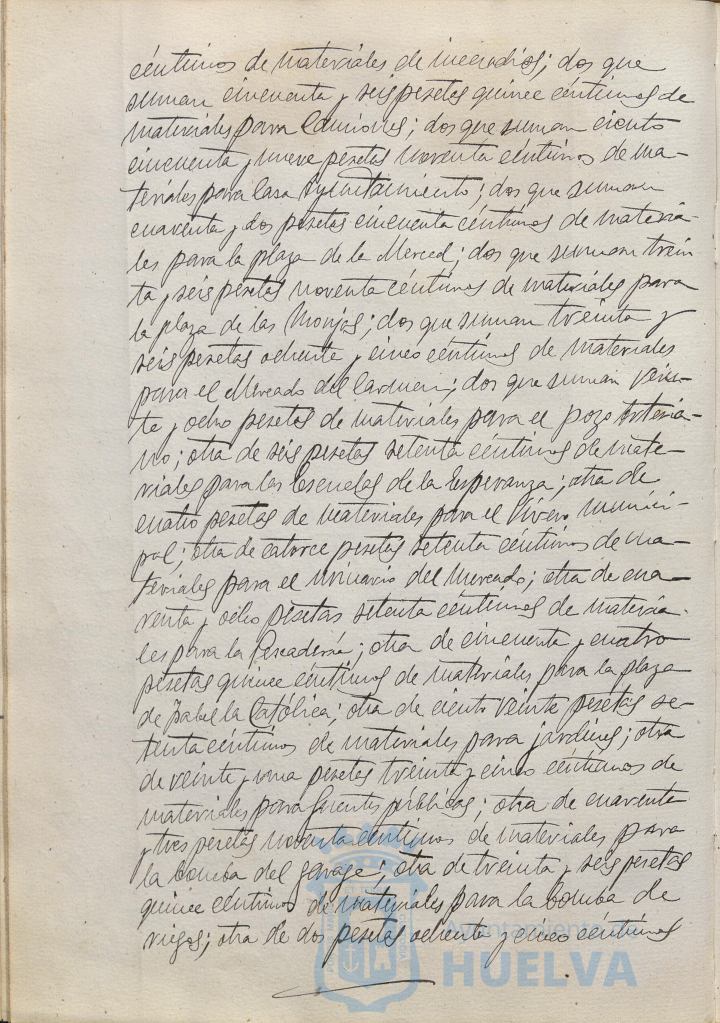 céntimos de materiales de incendios; dos que
suman cincuenta y seis pesetas quince céntimos de
materiales para Camiones; dos que suman ciento
cincuenta y nueve pesetas noventa céntimos de ma-
teriales para Casa Ayuntamiento; dos que suman
cuarenta y dos pesetas cincuenta céntimos de materia-
les para la plaza de la Merced; dos que suman trein
ta y seis pesetas noventa céntimos de materiales para
la plaza de las Monjas; dos que suman treinta y
seis pesetas ochenta y cinco céntimos de materiales
para el Mercado del Carmen; dos que suman vein-
te y ocho pesetas de materiales para el pozo Artesia-
no; otra de seis pesetas setenta céntimos de mate-
riales para las Escuelas de la Esperanza; otra de
cuatro pesetas de materiales para el Vivero munici-
pal; otra de catorce pesetas setenta céntimos de ma-
teriales para el urinario del Mercado; otra de cua-
renta y ocho pesetas setenta céntimos de materia-
les para la Pescadería; otra de cincuenta y cuatro
pesetas quince céntimos de materiales para la plaza
de Isabel la Católica; otra de ciento veinte pesetas se-
tenta céntimos de materiales para jardines; otra
de veinte y una pesetas treinta y cinco céntimos de
materiales para fuentes públicas; otra de cuarenta
y tres pesetas noventa céntimos de materiales para
la bomba del garage; otra de treinta y seis pesetas
quince céntimos de materiales para la bomba de
riegos; otra de dos pesetas ochenta y cinco céntimos
Ayuntamiento de
HUELVA